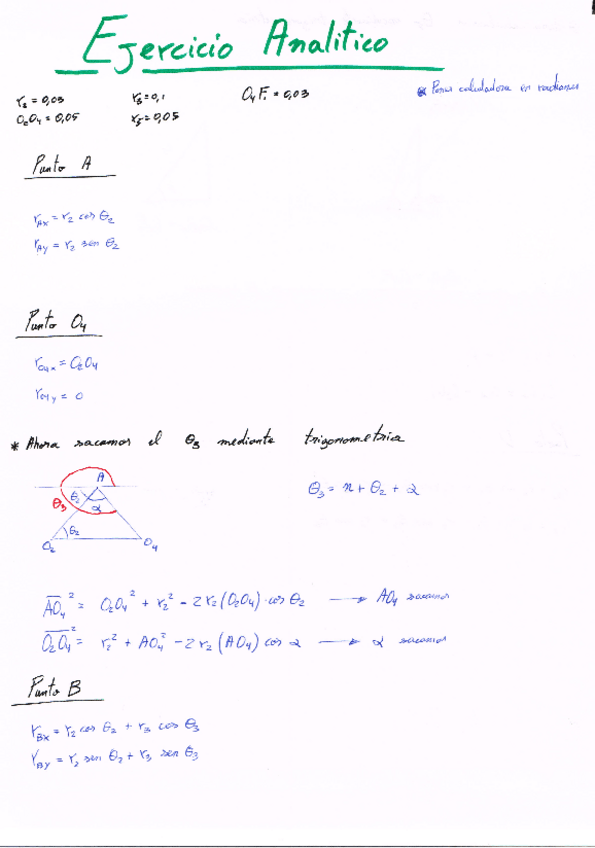 Ejercicio Analitico
r₂ = 0,03 r₃ = 0,1 O₄F = 0,03 * Poner calculadora en radianes
O₂O₄ = 0,05 r₅ = 0,05
Punto A
rAx = r₂ cos θ₂
rAy = r₂ sen θ₂
Punto O₄
rO₄x = O₂O₄
rO₄y = 0
* Ahora sacamos el θ₃ mediante trigonometria
A
θ₃ θ₂ α
θ₃ = π + θ₂ + α
θ₂
O₂ O₄
AO₄² = O₂O₄² + r₂² - 2r₂(O₂O₄)·cos θ₂ → AO₄ sacamos
O₂O₄² = r₂² + AO₄² - 2r₂(AO₄) cos α → α sacamos
Punto B
rBx = r₂ cos θ₂ + r₃ cos θ₃
rBy = r₂ sen θ₂ + r₃ sen θ₃